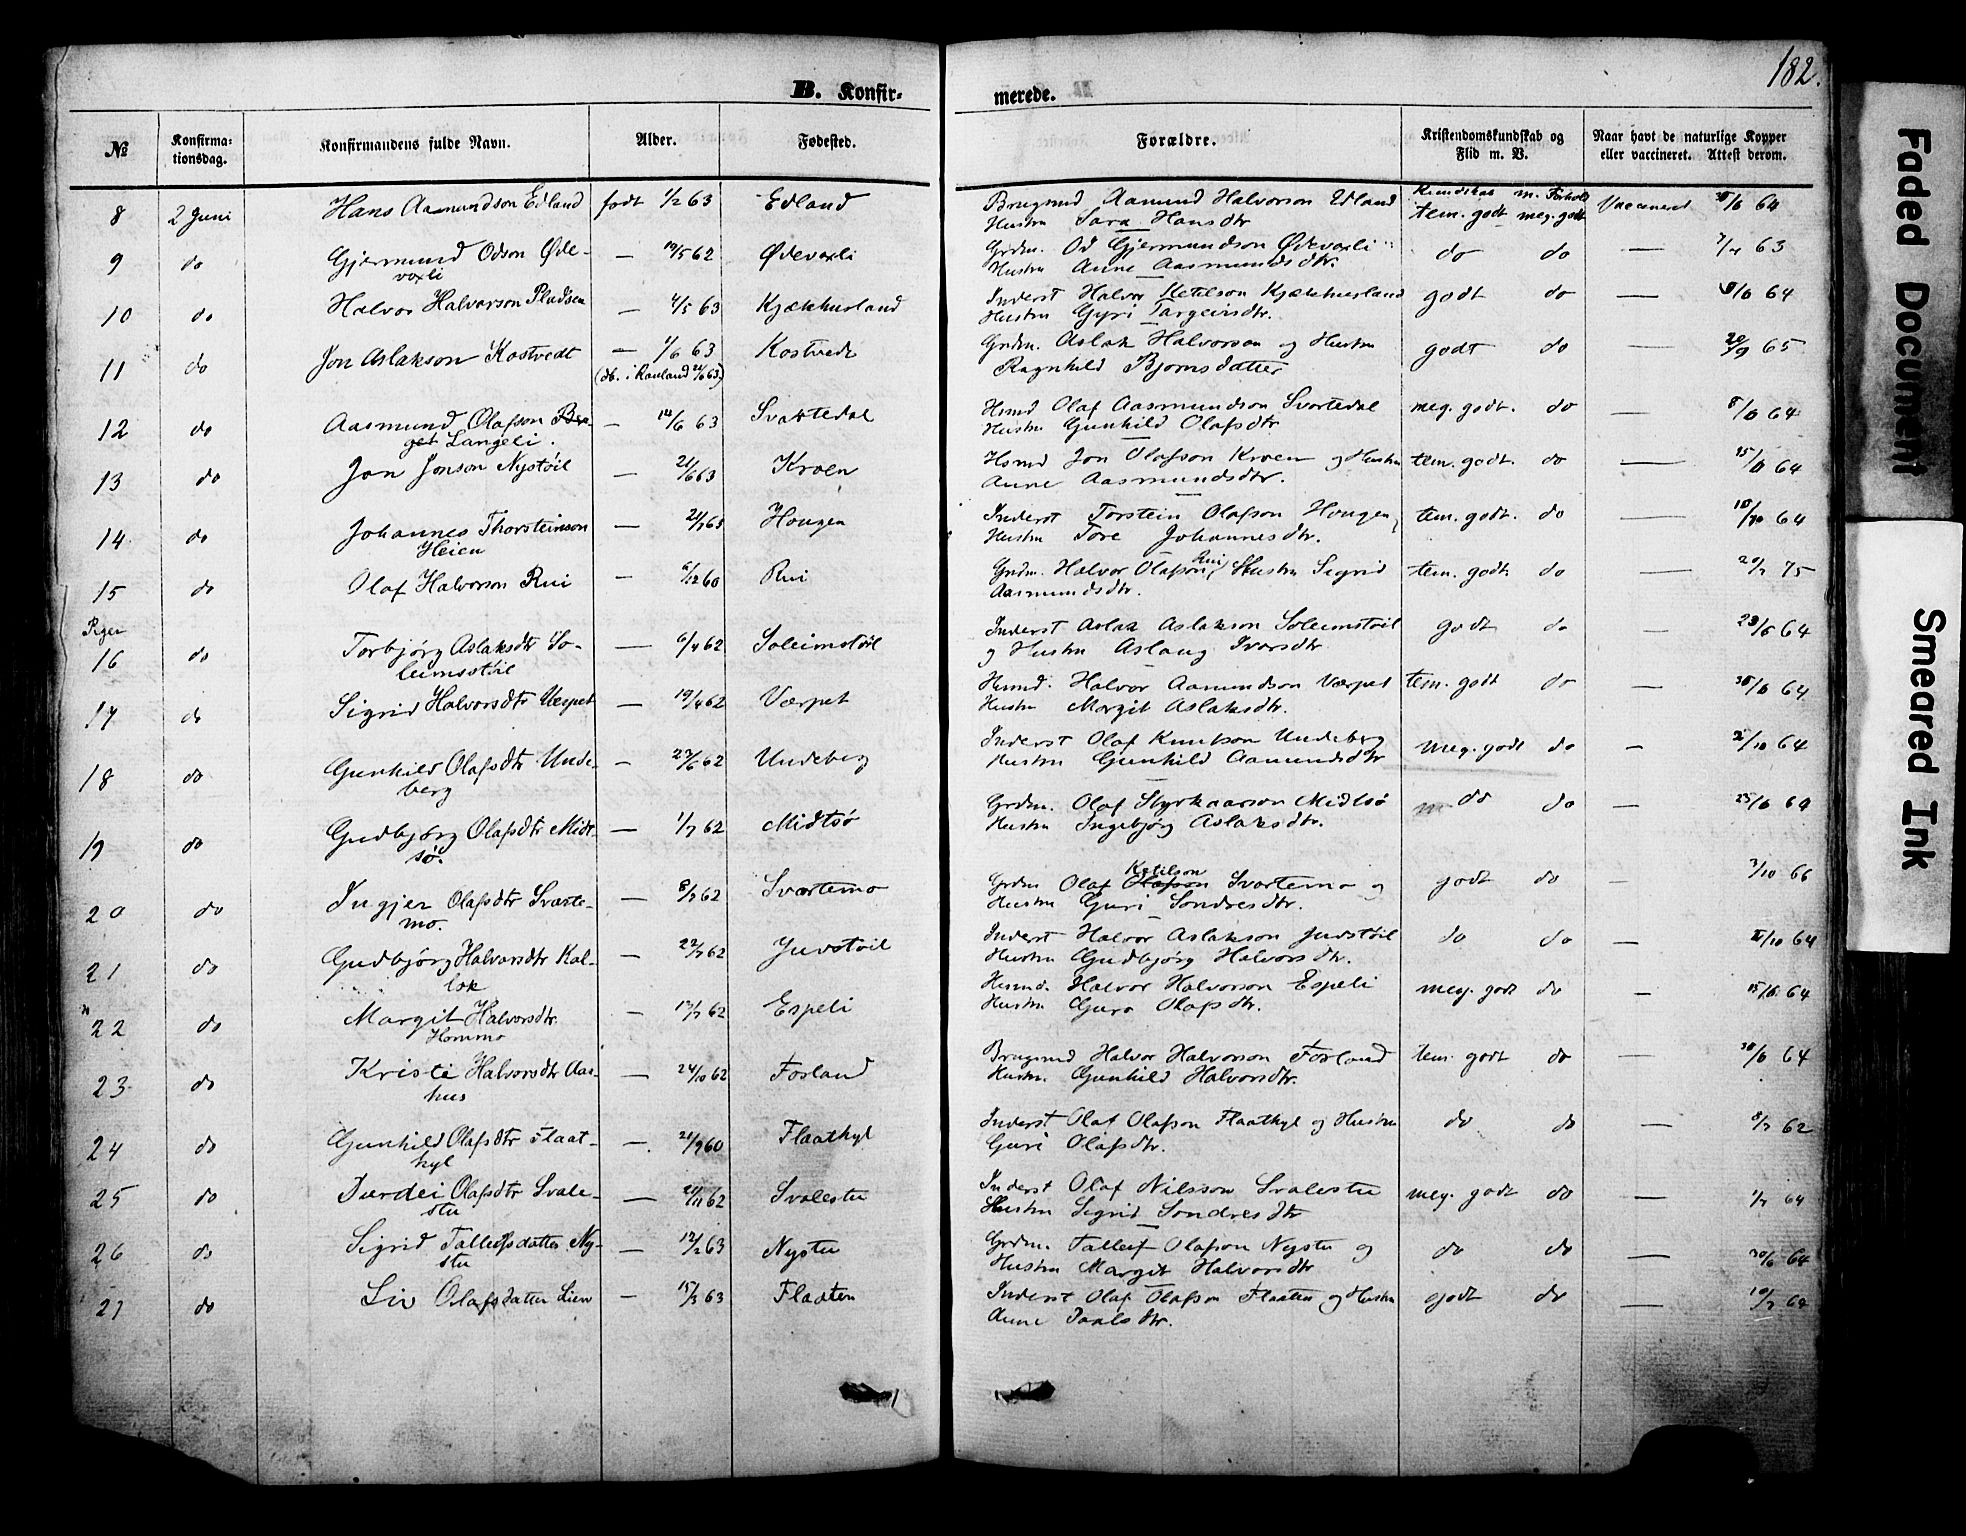 182.
B. Konfir-
merede.
№
Konfirma-
tionsdag.
Konfirmandens fulde Navn.
Alder.
Fødested.
Forældre.
Kristendomskundskab og
Flid m. V.
Naar havt de naturlige Kopper
eller vaccineret. Attest derom.
Kundskab m. Forhold
8 2 Juni Hans Aasmundson Edland født 1/2 63 Edland Brugsmd Aamund Halvorson Edland tem. godt meg. godt Vaccineret 64
Hustru Sara Hansdtr
9 do Gjermund Odson Øde- — 62 Ødevaxli Grdm. Od Gjermundson Ødevaxli do do — 63
voxli Hustru Anne Aasmundsdtr.
10 do Halvor Halvorson Pladsen — 4/5 63 Kjækkurland Inderst Halvor Ketilson Kjækkurland godt do — 64
Hustru Gyri Targeirsdtr.
11 do Jon Aslakson Kostvedt — 1/6 63 Kostvedt Grdm. Aslak Halvorson og Hustru godt do — 20/9 65
(db. i Rauland 21/6 63) Ragnhild Bjornsdatter
12 do Aasmund Olafson — 14/6 63 Svartedal Hsmd Olaf Aasmundson Svortedal meg. godt. do — 64
Langeli. Hustru Gunhild Olafsdtr.
13 do Jon Jonson Nystøil — 21/6 63 Kroen Hsmd Jon Olafson Kroen og Hustru tem. godt. do — 64
Anne Aasmundsdtr.
14 do Johannes Thorsteinson — Hougen Inderst Torstein Olafson Hougen, tem. godt. do — 64
Heien Hustru Tore Johannesdtr.
15 do Olaf Halvorson Rui — 6/12 60 Rui Grdm. Halvor Olafson Rui, Hustru Sigrid tem. godt do — 75
Aasmundsdtr.
Piger
16 do Torbjørg Aslaksdtr So- — 6/4 62 Soleimstøil Inderst Aslak Aslakson Soleimstøil godt do — 23/6 64
leimsstøil og Hustru Aslaug Ivarsdtr
17 do Sigrid Halvorsdtr Værpet — 19/4 62 Værpet Hsmd. Halvor Aamundson Værpet tem. godt do — 64
Hustru Margit Aslaksdtr.
18 do Gunhild Olafsdtr Unde- — 62 Undeberg Inderst Olaf Knutson Undeberg meg. godt do — 64
berg Hustru Gunhild Aamundsdtr
19 do Gudbjørg Olafsdtr Midt- — 1/7 62 Midtsø Grdm. Olaf Styrkaarson Midtsø do do — 64
sø. Hustru Ingebjørg Aslaksdtr.
20 do Ingjer Olafsdtr Svarte- — 8/7 62 Svartemo Grdm Olaf Olafson Ketilson Svartemo og godt do — 3/10 66
mo. Hustru Guri Sondresdtr.
21 do Gudbjørg Halvorsdtr Kal- — 22/7 62 Juvstøil Inderst Halvor Aslakson Juvstøil do do — 64
lok Hustru Gudbjørg Halvorsdtr.
22 do Margit Halvorsdtr. — 62 Espeli Hsmd. Halvor Halvorson Espeli meg. godt do — 64
Hommo Hustru Guro Olafsdtr.
23 do Kristi Halvorsdtr Aas- — 24/10 62 Fosland Brugsmd Halvor Halvorson Fosland tem. godt do — 64
hus Hustru. Gunhild Halvorsdtr.
24 do Gunhild Olafsdtr Flaat- — 21/9 60 Flaathyl Inderst Olaf Olafson Flaathyl og Hustru do do — 8/7 62
hyl Guri Olafsdtr.
25 do Durdei Olafsdtr Svale- — 21/11 62 Svalestu Inderst Olaf Nilsson Svalestu meg. godt do — 1/7 64
stu Hustru Sigrid Sondresdtr
26 do Sigrid Talleifsdatter Ny- — 12/2 63 Nystu Grdm. Talleif Olafson Nystu og do do — 30/6 64
stu Hustru Margit Halvorsdtr
27 do Liv Olafsdatter Lien — 15/3 63 Flaaten Inderst Olaf Olafson Flaaten og Hustru godt do — 64
Anne Paalsdtr.
Faded Document
Smeared Ink